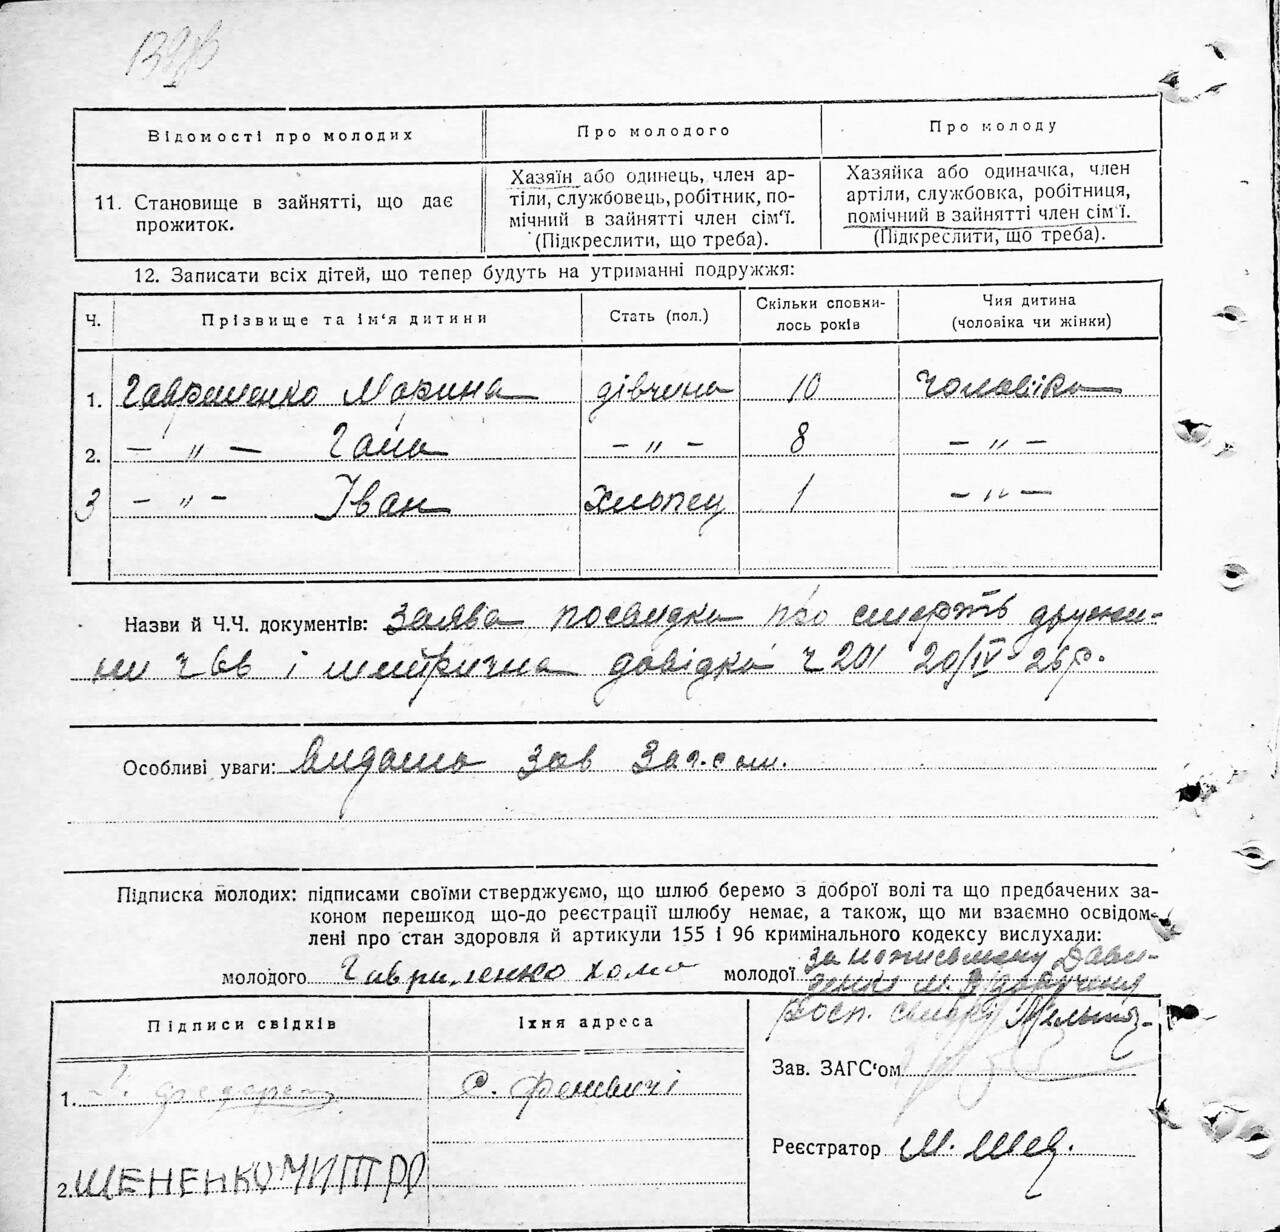 Відомості про молодих
Про молодого
Про молоду
11. Становище в зайнятті, що дає
прожиток.
Хазяїн або одинець, член ар-
тіли, службовець, робітник, по-
мічний в зайнятті член сім'ї.
(Підкреслити, що треба).
Хазяйка або одиначка, член
артіли, службовка, робітниця,
помічний в зайнятті член сім'ї.
(Підкреслити, що треба).
12. Записати всіх дітей, що тепер будуть на утриманні подружжя:
Ч.
Прізвище та ім'я дитини
Стать (пол.)
Скільки сповни-
лось років
Чия дитина
(чоловіка чи жінки)
1. Гавриленко Марина дівчина 10 чоловіка
2. — „ — Гана — „ — 8 — „ —
3 — „ — Іван хлопец 1 — „ —
Назви й Ч.Ч. документів: заява посвидка про смерть дружи-
ни ч 66 і метрична довідка ч 201 20/IV 26р.
Особливі уваги: видано зав Заг.сом.
Підписка молодих: підписами своїми стверджуємо, що шлюб беремо з доброї волі та що предбачених за-
коном перешкод що-до реєстрації шлюбу немає, а також, що ми взаємно освідом-
лені про стан здоровля й артикули 155 і 96 кримінального кодексу вислухали:
молодого Гавриленко Хома молодої за неписьмену Дави-
денко М.
розп.
Підписи свідків
Їхня адреса
Зав. ЗАГС'ом
1.
с.
Реєстратор М.
2. ШЕНЕНКО МИТРО